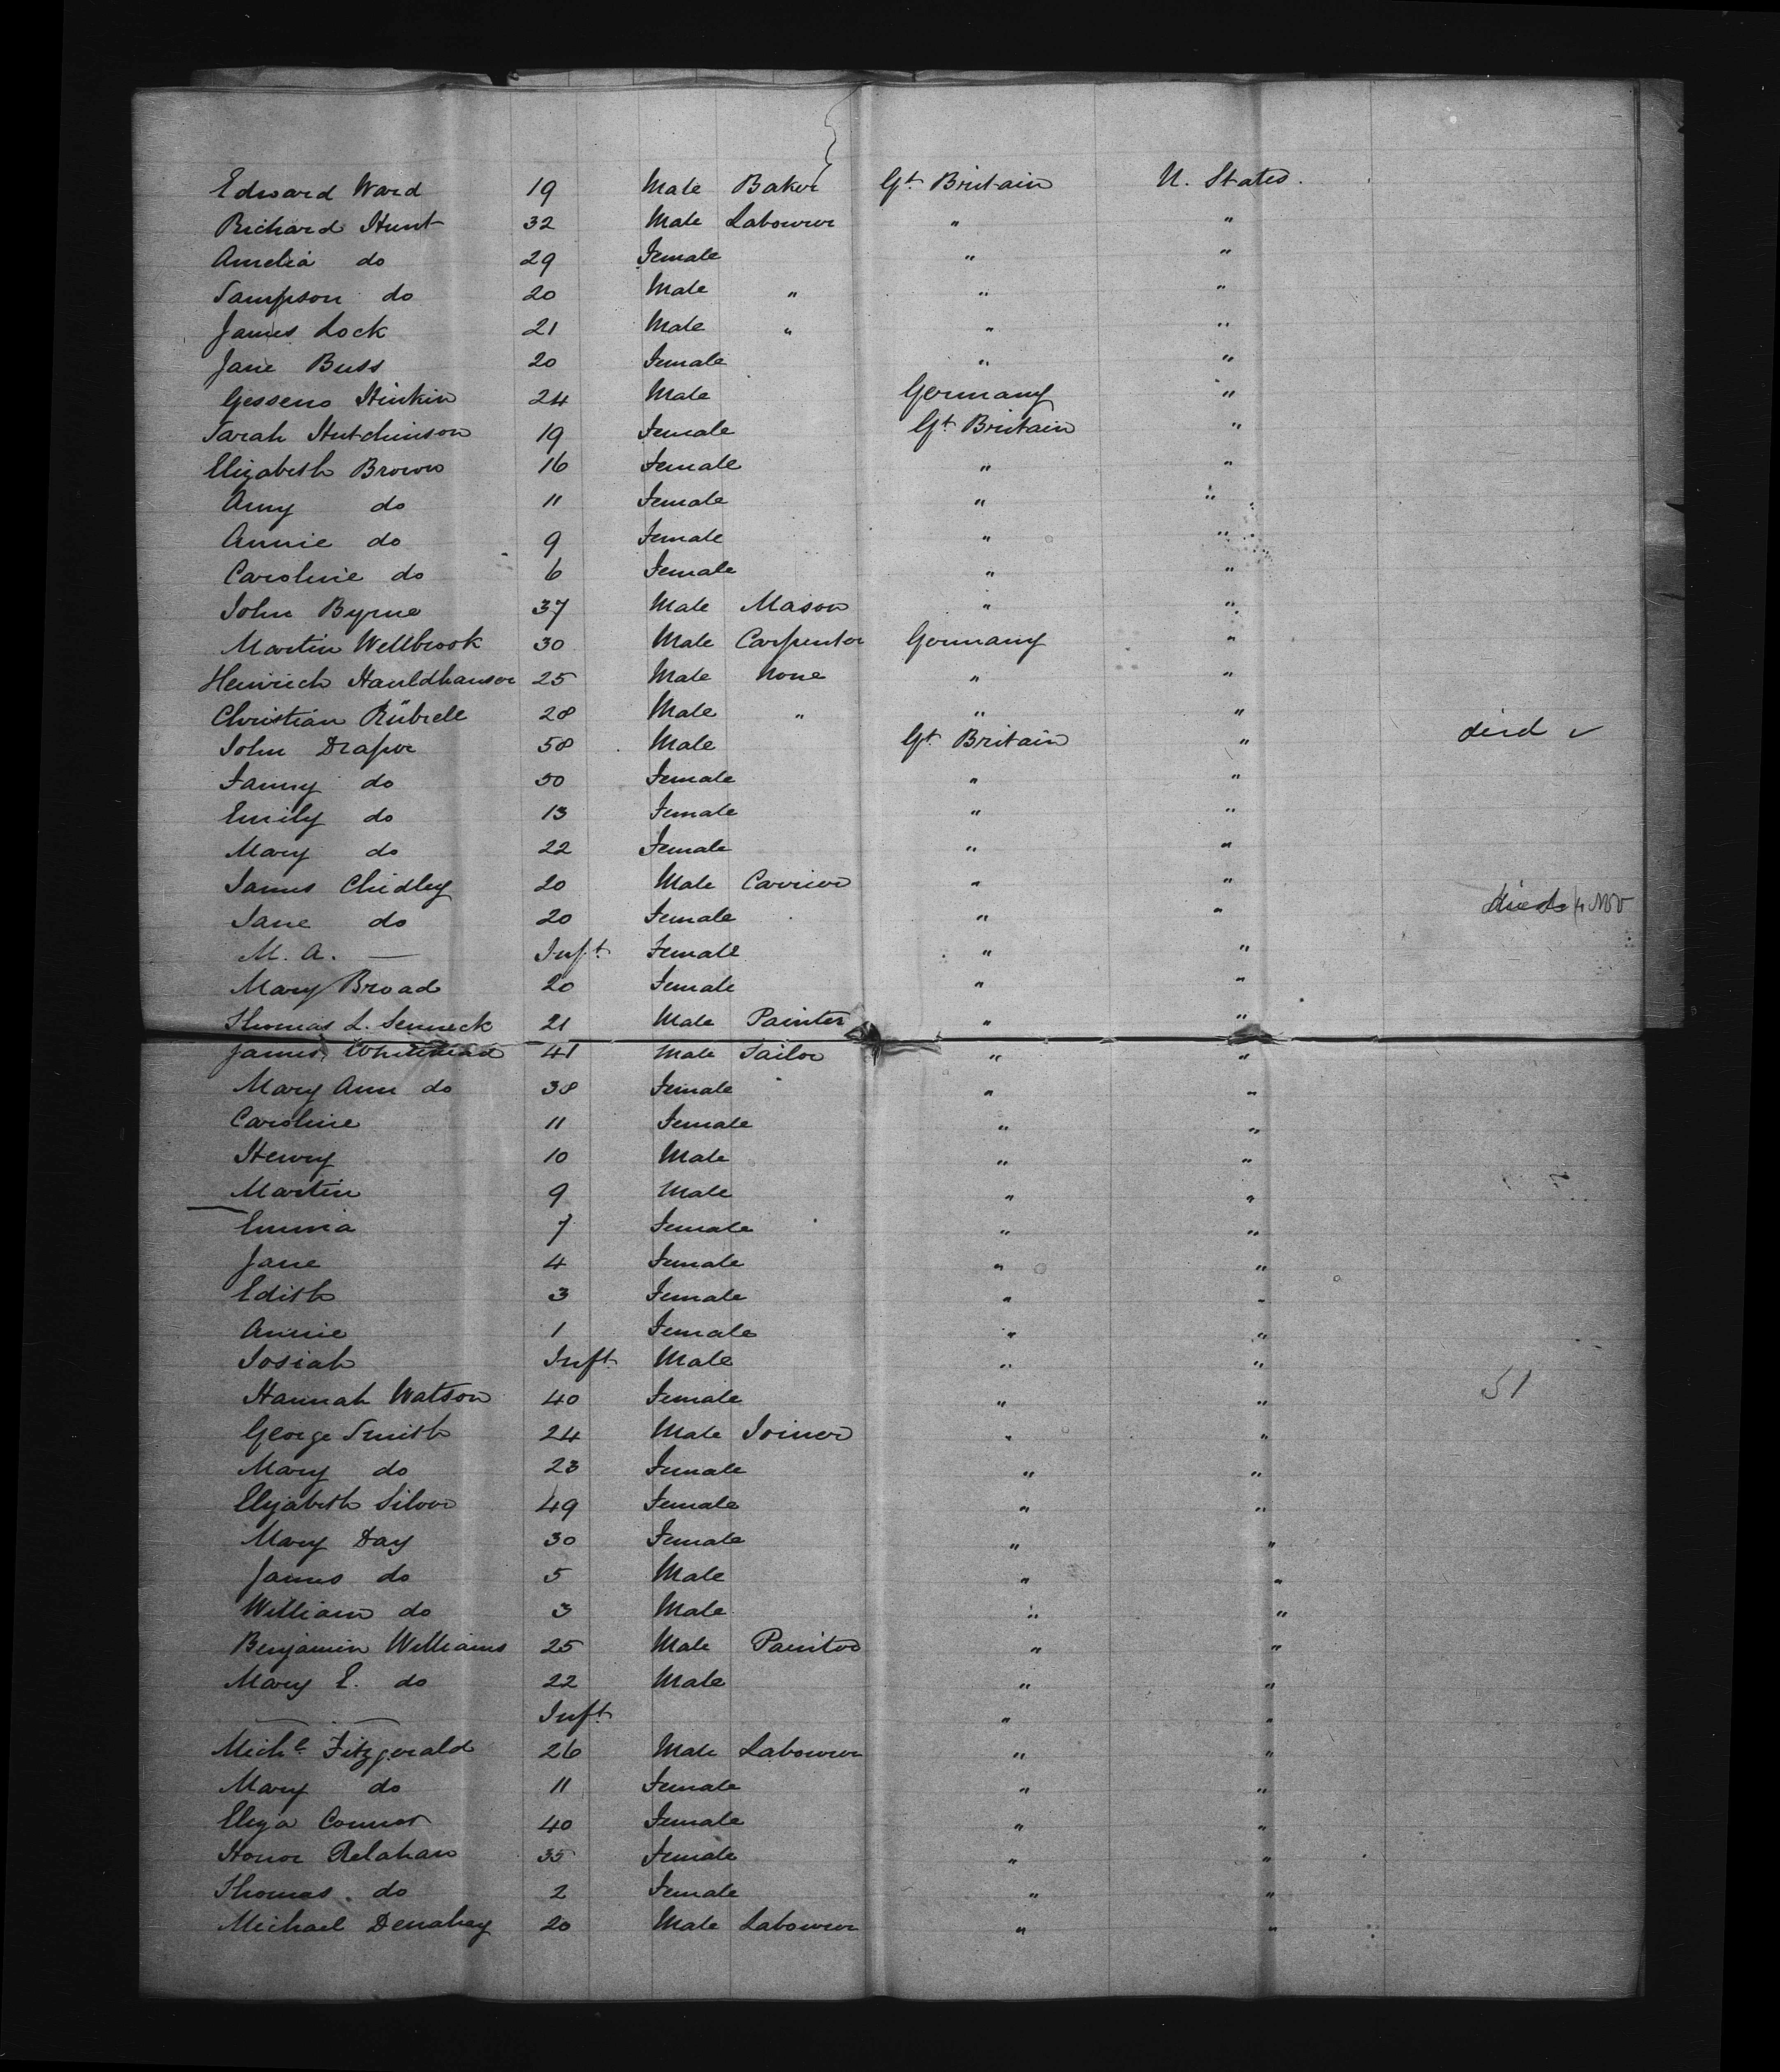 Edward Ward 19 Male Baker Gt. Britain U. States.
Richard Hunt 32 Male Labourer " "
Amelia do 29 Female " "
Sampson do 20 Male " " "
James Lock 21 Male " " "
Jane Buss 20 Female " "
Gesseno Hinkin 24 Male Germany "
Sarah Hutchinson 19 Female Gt. Britain "
Elizabeth Brown 16 Female " "
Amy do 11 Female " "
Annie do 9 Female " "
Caroline do 6 Female " "
John Byrne 37 Male Mason " "
Martin Wellbrook 30 Male Carpenter Germany "
Heinrich Hauldhauser 25 Male None " "
Christian Rübrell 28 Male " " "
John Draper 58 Male Gt. Britain " died ✓
Fanny do 50 Female " "
Emily do 13 Female " "
Mary do 22 Female " "
James Chidley 20 Male Carrier " "
Jane do 20 Female " " died
M. A. — Inft. Female " "
Mary Broad 20 Female " "
Thomas L. Senneck 21 Male Painter " "
James Whitehead 41 Male Tailor " "
Mary Ann do 38 Female " "
Caroline 11 Female " "
Henry 10 Male " "
Martin 9 Male " "
Emma 7 Female " "
Jane 4 Female " "
Edith 3 Female " "
Annie 1 Female " "
Josiah Inft. Male " "
Hannah Watson 40 Female " " 51
George Smith 24 Male Joiner " "
Mary do 23 Female " "
Elizabeth Silver 49 Female " "
Mary Day 30 Female " "
James do 5 Male " "
William do 3 Male " "
Benjamin Williams 25 Male Painter " "
Mary E. do 22 Male " "
— — Inft. " "
Michl. Fitzgerald 26 Male Labourer " "
Mary do 11 Female " "
Eliza Connor 40 Female " "
Honor Relahan 35 Female " "
Thomas do 2 Female " "
Michael Denahey 20 Male Labourer " "